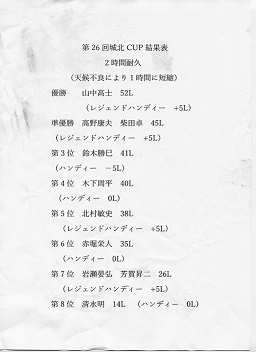 第26回城北CUP結果表
2時間耐久
（天候不良により1時間に短縮）
優勝　山中高士　52L
（レジェンドハンディー　+5L）
準優勝　高野康夫　柴田卓　45L
（レジェンドハンディー　+5L）
第3位　鈴木勝巳　41L
（ハンディー　－5L）
第4位　木下周平　40L
（ハンディー　0L）
第5位　北村敏史　38L
（レジェンドハンディー　+5L）
第6位　赤堀栄人　35L
（ハンディー　0L）
第7位　岩瀬晏弘　芳賀昇二　26L
（レジェンドハンディー　+5L）
第8位　清水明　14L　（ハンディー　0L）